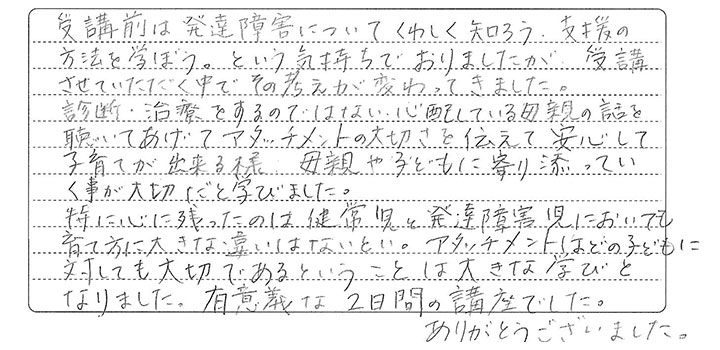 受講前は発達障害についてくわしく知ろう、支援の
方法を学ぼう。という気持ちでおりましたが、受講
させていただく中でその考えが変わってきました。
診断・治療をするのではない、心配している母親の話を
聴いてあげてアタッチメントの大切さを伝えて安心して
子育てが出来る様、母親や子どもに寄り添ってい
く事が大切だと学びました。
特に心に残ったのは健常児と発達障害児においても
育て方に大きな違いはないとい。アタッチメントはどの子どもに
対しても大切であるということは大きな学びと
なりました。有意義な2日間の講座でした。
ありがとうございました。